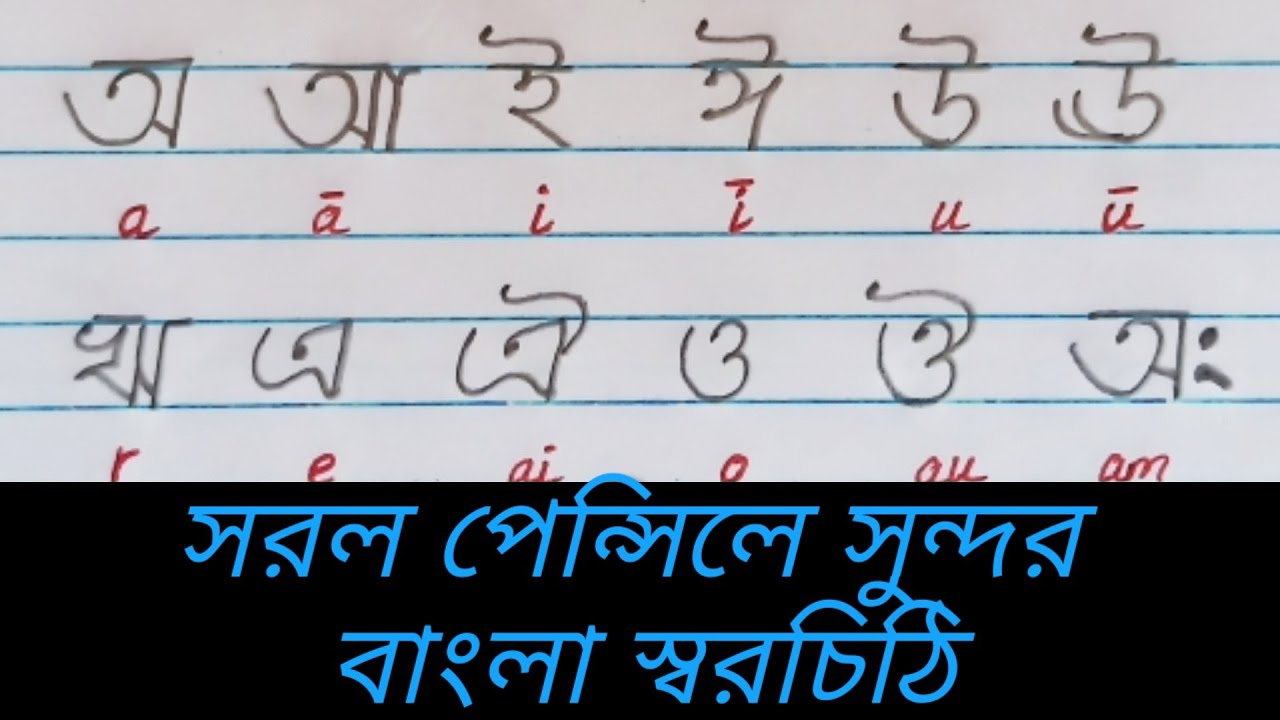 অ আ ই ঈ উ ঊ
a ā i ī u ū
ঋ এ ঐ ও ঔ অঃ
r e ai o au am
সরল পেন্সিলে সুন্দর
বাংলা স্বরচিঠি